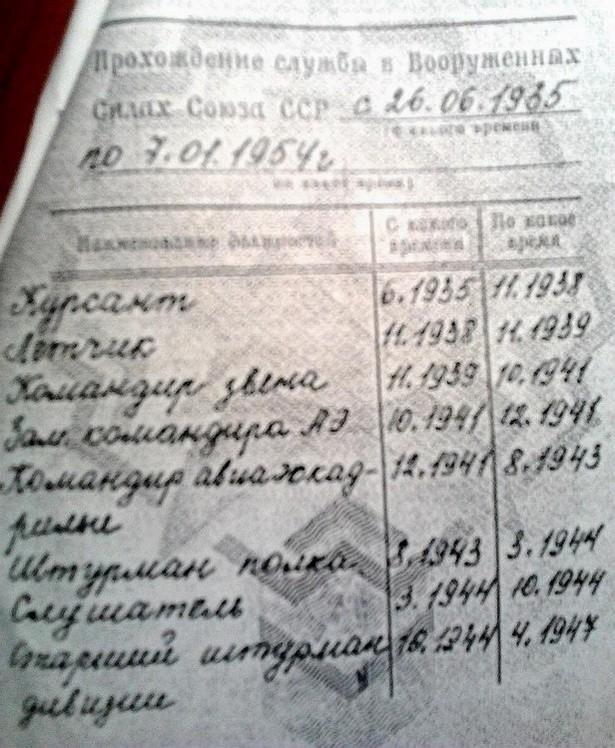 Прохождение службы в Вооруженных
Силах Союза ССР с 26.06.1935
(с какого времени
по 7.01.1954г
по какое время)
Наименование должностей С какого времени По какое время
Курсант 6.1935 11.1938
Летчик 11.1938 11.1939
Командир звена 11.1939 10.1941
Зам. командира АЭ 10.1941 12.1941
Командир авиаэскад- 12.1941 8.1943
рильи
Штурман полка 8.1943 3.1944
Слушатель 3.1944 10.1944
Старший штурман 10.1944 4.1947
дивизии